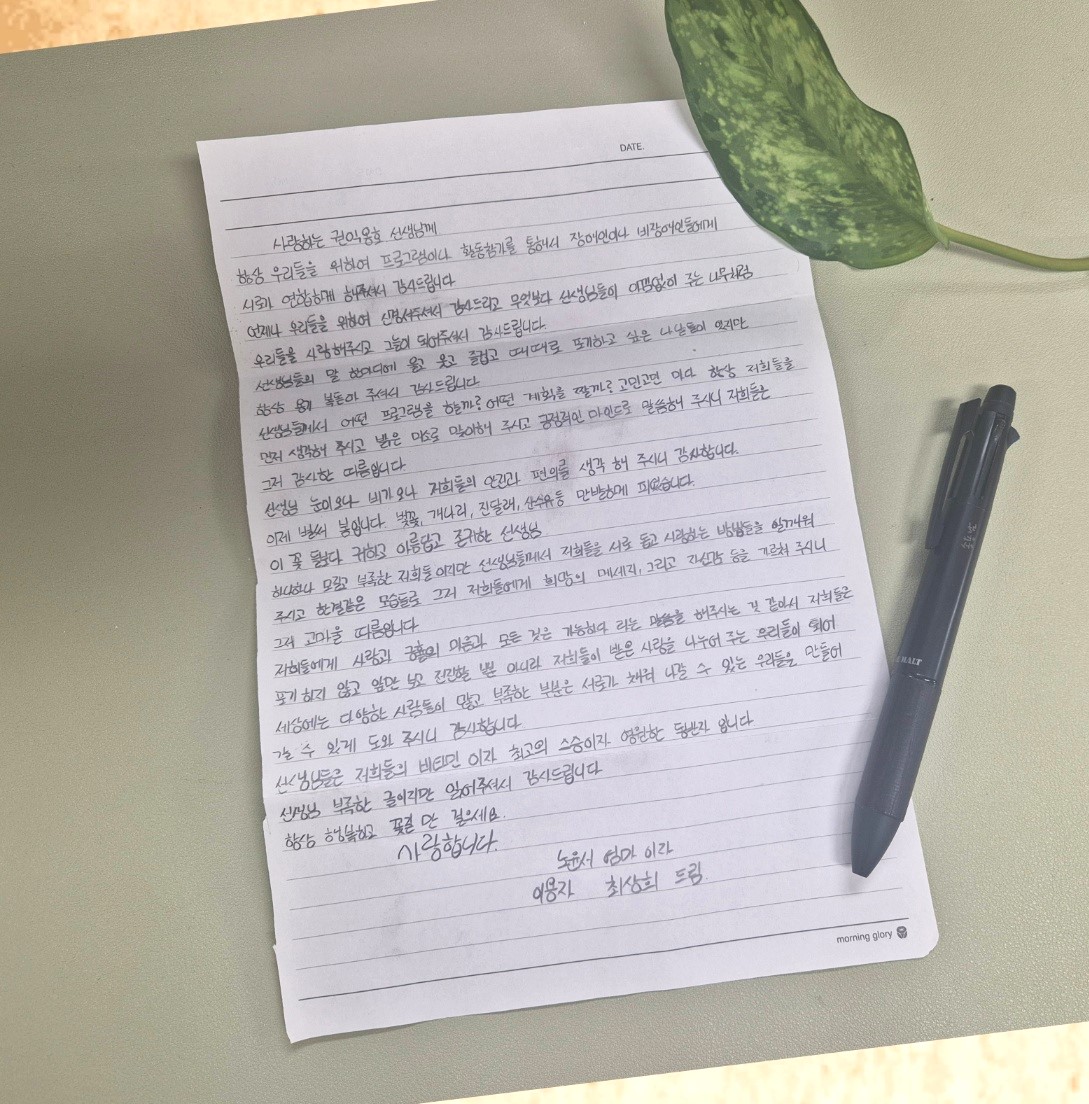 DATE.
사랑하는 권익옹호 선생님께
항상 우리들을 위하여 프로그램이나 활동참가를 통해서 장애인이나 비장애인들에게
서로가 연합하게 해주셔서 감사드립니다
언제나 우리들을 위하여 신경써주셔서 감사드리고 무엇보다 선생님들이 아낌없이 주는 나무처럼
우리들을 사랑해주시고 그늘이 되어주셔서 감사드립니다.
선생님들의 말 한마디에 울고 웃고 즐겁고 때때로 포기하고 싶은 나날들이 있지만
항상 용기 북돋아 주셔서 감사드립니다
선생님들께서 어떤 프로그램을 할까? 어떤 계획을 짤까? 고민고민 마다 항상 저희들을
먼저 생각해 주시고 밝은 미소로 맞이해 주시고 긍정적인 마인드로 말씀해 주시니 저희들은
그저 감사한 따름입니다.
선생님 눈이오나 비가오나 저희들의 안전과 편의를 생각 해 주시니 감사합니다.
이제 벌써 봄입니다. 벚꽃, 개나리, 진달래, 산수유등 만발하게 피었습니다.
이 꽃 들보다 귀하고 아름답고 존귀한 선생님
하나하나 모람고 부족한 저희들 이지만 선생님들께서 저희들을 서로 돕고 사랑하는 방법들을 일깨워
주시고 한결같은 모습들로 그저 저희들에게 희망의 메세지, 그리고 자신감 등을 가르쳐 주시니
그저 고마울 따름입니다
저희들에게 사랑과 긍휼의 마음과 모든 것은 가능하다 라는 말씀을 해주시는 것 같아서 저희들은
포기 하지 않고 앞만 보고 전진할 뿐 아니라 저희들이 받은 사랑을 나누어 주는 우리들이 되어
세상에는 다양한 사람들이 많고 부족한 부분은 서로가 채워 나갈 수 있는 우리들을 만들어
갈 수 있게 도와 주시니 감사합니다
선생님들은 저희들의 비타민 이자 최고의 스승이자 영원한 동반자 입니다
선생님 부족한 글이지만 읽어주셔서 감사드립니다
항상 행복하고 꽃길 만 걸으세요.
사랑합니다.
노윤서 엄마 이자
이용자 최상희 드림
morning glory